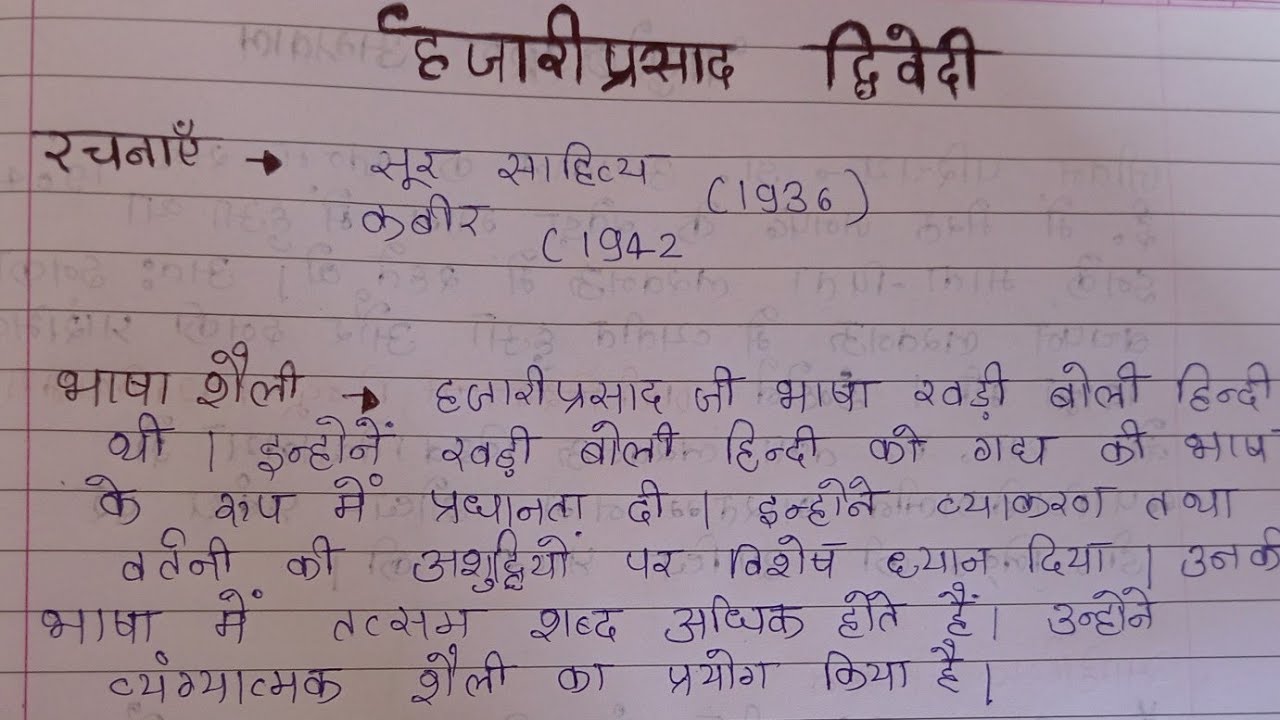 हजारीप्रसाद द्विवेदी
रचनाएँ → सूर साहित्य (1936)
कबीर (1942
भाषा शैली → हजारीप्रसाद जी भाषा खड़ी बोली हिन्दी
थी । इन्होनें खड़ी बोली हिन्दी को गद्य की भाष
के रूप में प्रधानता दी । इन्होने व्याकरण तथा
वर्तनी की अशुद्धियों पर विशेष ध्यान दिया । उनकी
भाषा में तत्सम शब्द अधिक होते हैं । उन्होने
व्यंग्यात्मक शैली का प्रयोग किया है ।